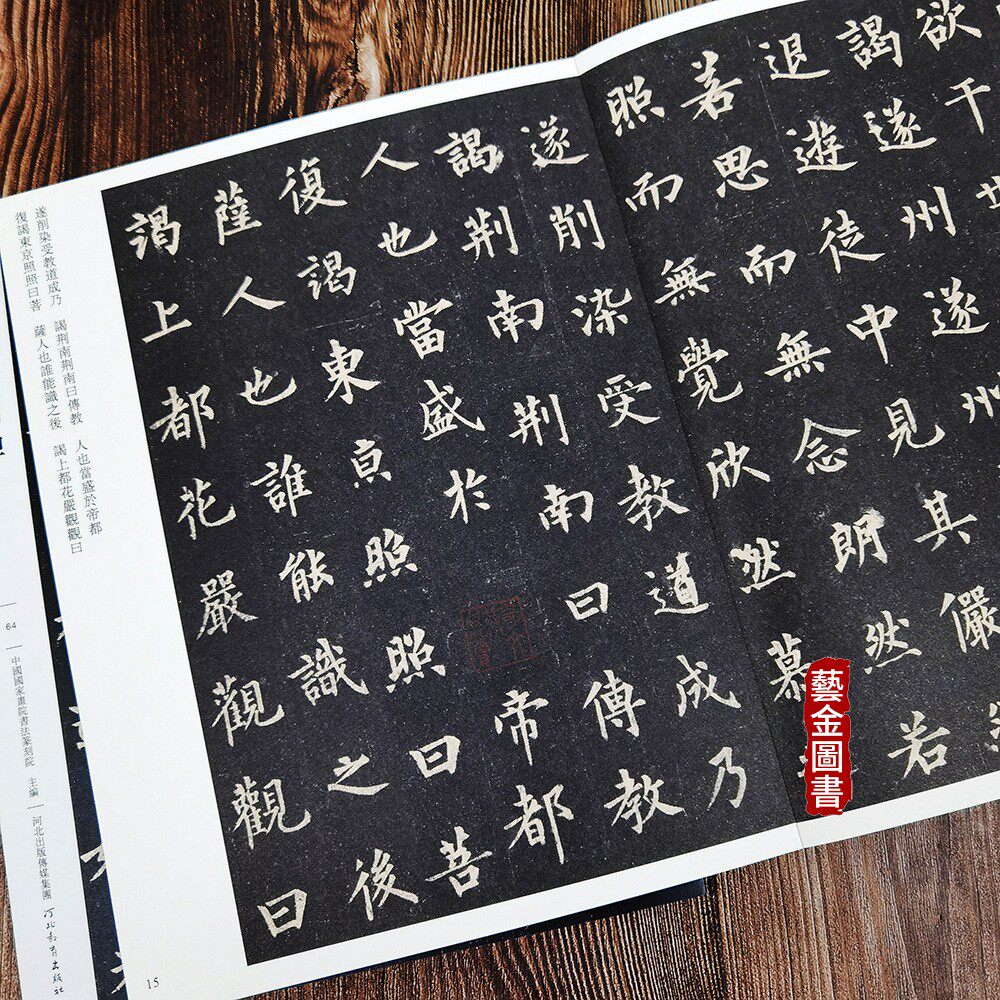 欲千
謁遂州遂州
退遊徒中見其儼
善思而無念朗然若
照而無覺欣然慕
遂削染受教道成乃
謁荊南荊南曰傳教
人也當盛於帝都
復謁東京照照曰菩
薩人也誰能識之後
謁上都花嚴觀觀曰
遂削染受教道成乃
謁荊南荊南曰傳教
人也當盛於帝都
復謁東京照照曰菩
薩人也誰能識之後
謁上都花嚴觀觀曰
15
64
中國國家畫院書法篆刻院 主編
河北出版傳媒集團
河北教育出版社
藝金圖書